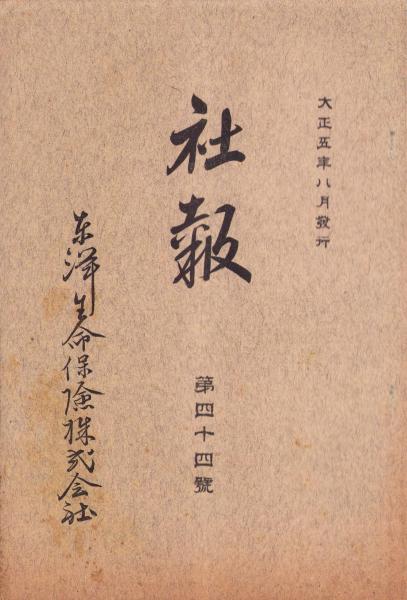 大正五年八月發行
社報
第四十四號
東洋生命保險株式会社